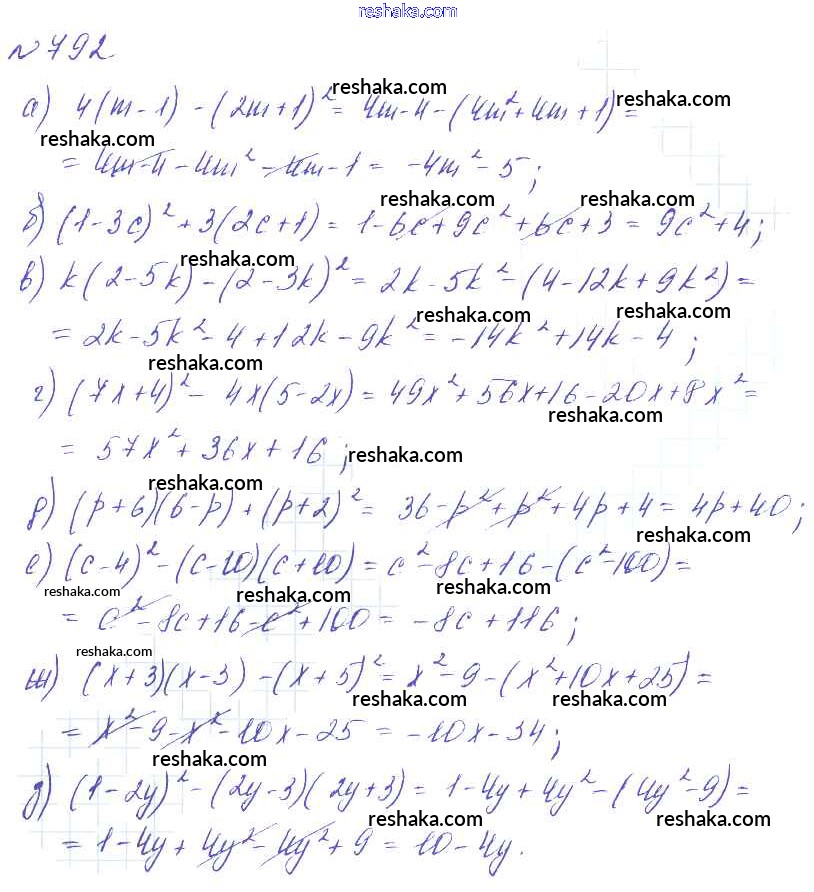 reshaka.com
№ 792
reshaka.com
а) 4(m-1) - (2m+1)² = 4m-4-(4m²+4m+1) = reshaka.com
reshaka.com
= 4m-4-4m²-4m-1 = -4m²-5;
reshaka.com reshaka.com
б) (1-3c)² + 3(2c+1) = 1-6c+9c²+6c+3 = 9c²+4;
reshaka.com
в) k(2-5k)-(2-3k)² = 2k-5k²-(4-12k+9k²) =
reshaka.com reshaka.com
= 2k-5k²-4+12k-9k² = -14k²+14k-4;
reshaka.com
г) (7x+4)² - 4x(5-2x) = 49x²+56x+16-20x+8x² =
reshaka.com
= 57x²+36x+16; reshaka.com
reshaka.com
д) (p+6)(6-p)+(p+2)² = 36-p²+p²+4p+4 = 4p+40;
reshaka.com
е) (c-4)²-(c-10)(c+10) = c²-8c+16-(c²-100) =
reshaka.com reshaka.com reshaka.com
= c²-8c+16-c²+100 = -8c+116;
reshaka.com
ж) (x+3)(x-3)-(x+5)² = x²-9-(x²+10x+25) =
reshaka.com reshaka.com
= x²-9-x²-10x-25 = -10x-34;
reshaka.com
д) (1-2y)²-(2y-3)(2y+3) = 1-4y+4y²-(4y²-9) =
reshaka.com reshaka.com
= 1-4y+4y²-4y²+9 = 10-4y.